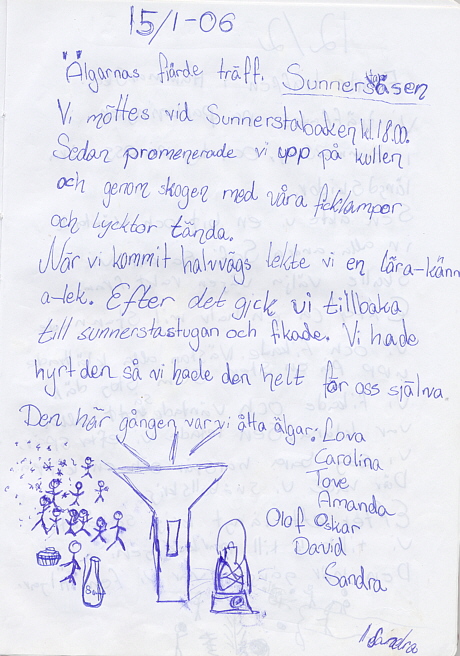 15/1-06
Älgarnas fjärde träff. Sunnerstaåsen
Vi möttes vid Sunnerstabacken kl.18.00.
Sedan promenerade vi upp på kullen
och genom skogen med våra ficklampor
och lycktor tända.
När vi kommit halvvägs lekte vi en lära-känn
a-lek. Efter det gick vi tillbaka
till sunnerstastugan och fikade. Vi hade
hyrt den så vi hade den helt för oss själva.
Den här gången var vi åtta älgar: Lova
Carolina
Tove
Amanda
Olof Oskar
David
Sandra
//Sandra